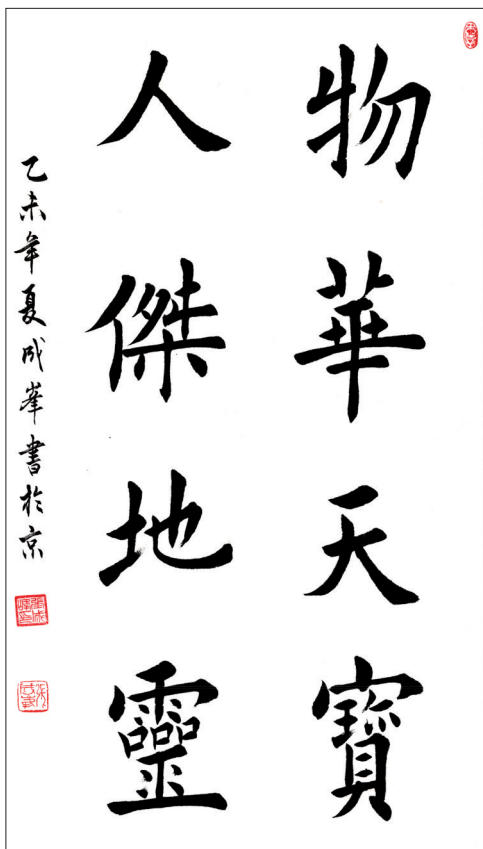 物華天寶
人傑地靈
乙未年夏成峯書於京